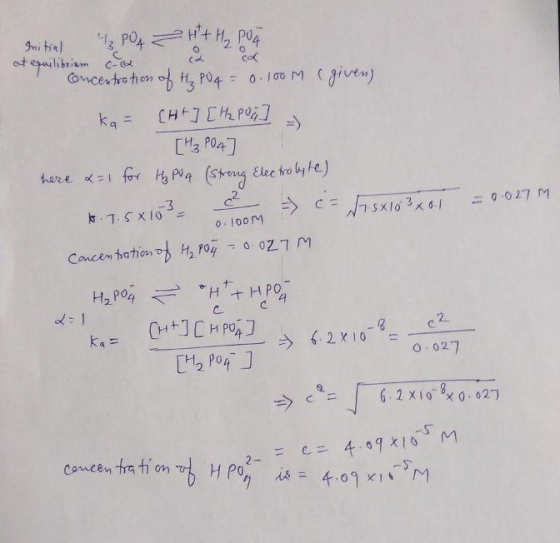 H3 PO4 ⇌ H+ + H2 PO4-
Initial O O
at equilibrium c-cα cα cα
Concentration of H3 PO4 = 0.100 M (given)
Ka = [H+] [H2PO4-] / [H3 PO4] ⇒
here α=1 for H3PO4 (Strong Electrolyte)
7.5×10-3 = c2 / 0.100M ⇒ c = √7.5×10-3 × 0.1 = 0.027 M
Concentration of H2 PO4- = 0.027 M
H2PO4- ⇌ H+ + HPO4-
c c
α=1
Ka = [H+] [HPO4-] / [H2 PO4-] ⇒ 6.2×10-8 = c2 / 0.027
⇒ c2 = √6.2×10-8 × 0.027
= c = 4.09×10-5 M
concentration of HPO4 2- is = 4.09×10-5 M